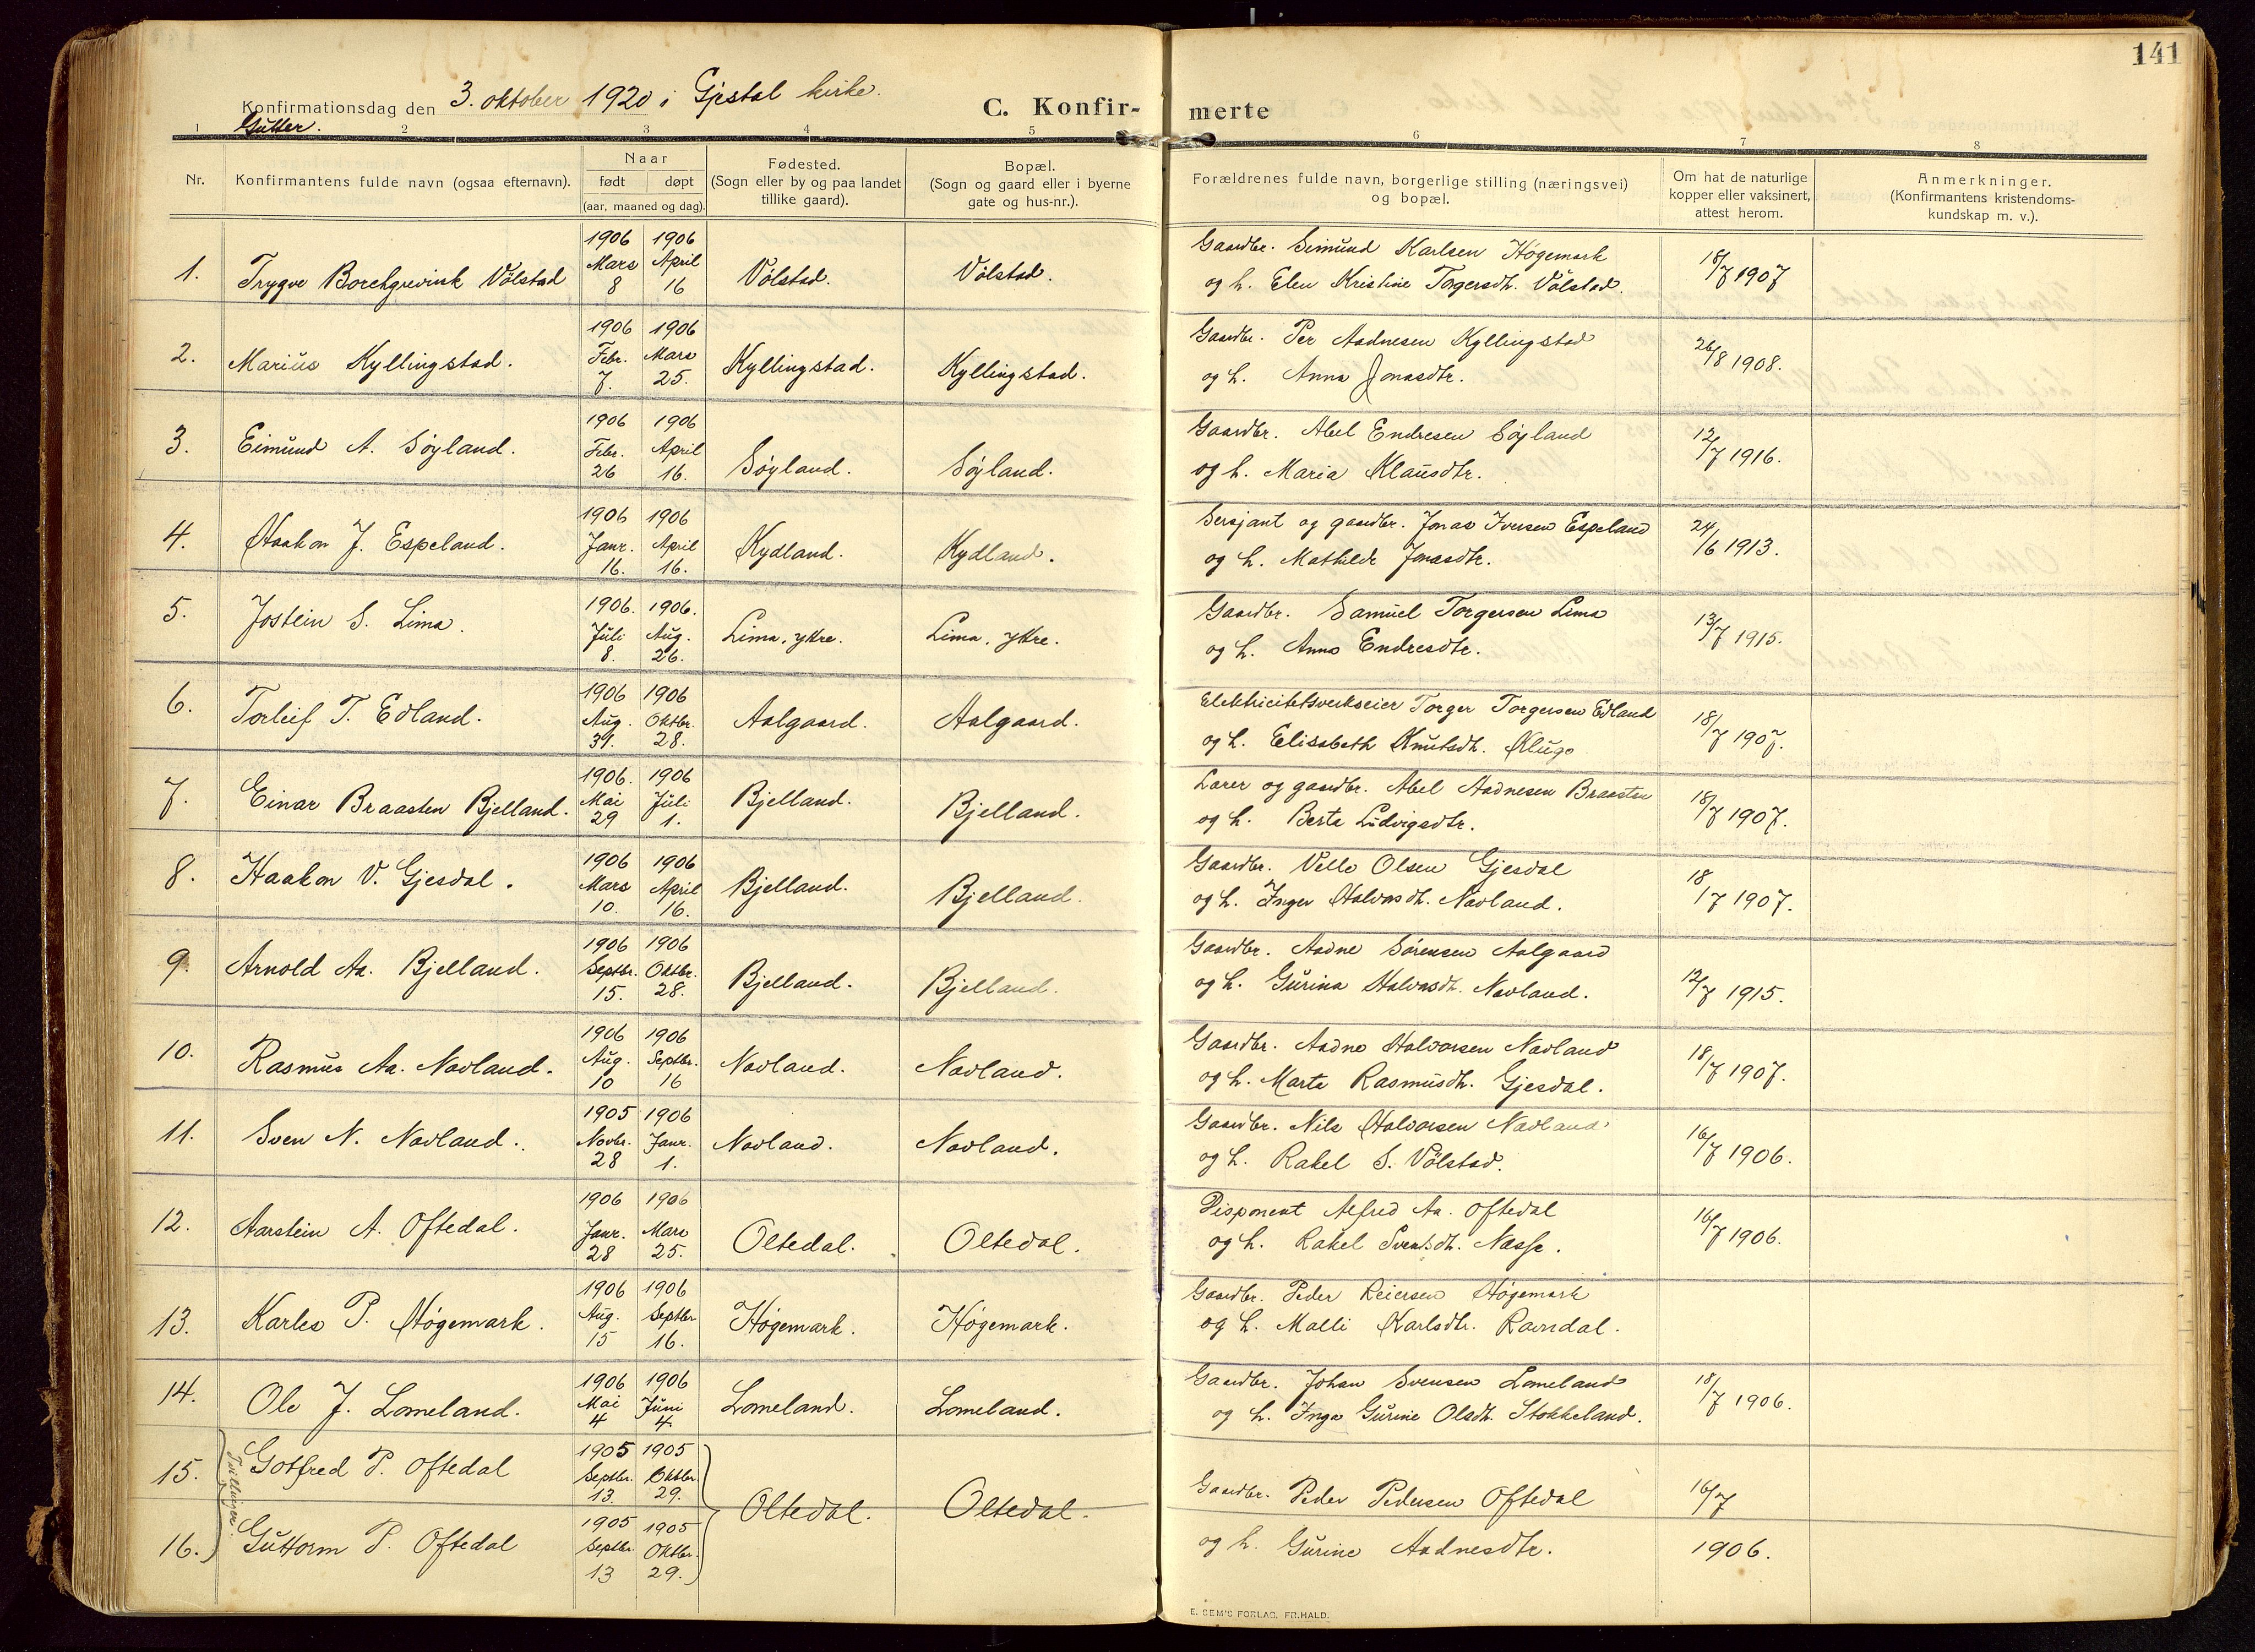 141
Konfirmationsdag den 3. oktober 1920 i Gjestal kirke.
Gutter.
C. Konfir- merte
1 2 3 4 5 6 7 8
Nr.
Konfirmantens fulde navn (ogsaa efternavn).
Naar
født døpt
(aar, maaned og dag).
Fødested.
(Sogn eller by og paa landet
tillike gaard).
Bopæl.
(Sogn og gaard eller i byerne
gate og hus-nr.).
Forældrenes fulde navn, borgerlige stilling (næringsvei)
og bopæl.
Om hat de naturlige
kopper eller vaksinert,
attest herom.
Anmerkninger.
(Konfirmantens kristendoms-
kundskap m. v.).
1906 1906 Gaardbr. Simund Karlsen Høgemark
1. Trygve Borchgrevink Vølstad Mars April Vølstad. Vølstad. 18/7 1907
8 16 og h. Elen Kristine Torgersdtr. Vølstad.
1906 1906 Gaardbr. Per Aadnesen Kyllingstad
2. Marius Kyllingstad. Febr. Mars Kyllingstad. Kyllingstad. 26/8 1908.
7. 25. og h. Anna Jonasdtr.
1906 1906 Gaardbr. Abel Endresen Søyland
3. Eimund A. Søyland. Febr. April Søyland. Søyland. 12/7 1916.
26 16. og h. Maria Klausdtr.
1906 1906 Sersjant og gaardbr. Jonas Iversen Espeland
4. Haakon J. Espeland. Janr. April Kydland. Kydland. 24/6 1913.
16. 16. og h. Mathilde Jonasdtr.
1906. 1906. Gaardbr. Samuel Torgersen Lima
5. Jostein S. Lima. Juli Aug. Lima, ykre. Lima, ykre. 13/7 1915.
8. 26. og h. Anna Endresdtr.
1906 1906 Elektricitetsverkseier Torger Torgersen Edland
6. Torleif T. Edland. Aug. Oktbr. Aalgaard. Aalgaard. 18/7 1907.
31. 28. og h. Elisabeth Knutsdtr. Kluge
1906. 1906 Lærer og gaardbr. Abel Aadnesen Braasten
7. Einar Braasten Bjelland. Mai Juli Bjelland. Bjelland. 18/7 1907.
29 1. og h. Berta Ludvigsdtr.
1906 1906 Gaardbr. Velle Olsen Gjesdal
8. Haakon V. Gjesdal. Mars April Bjelland. Bjelland. 18/7 1907.
10. 16. og h. Inger Halvorsdtr. Nævland.
1906 1906 Gaardbr. Aadne Sørensen Aalgaard
9. Arnold Aa. Bjelland. Septbr. Oktbr. Bjelland. Bjelland. 12/7 1915.
15. 28. og h. Gurina Halvorsdtr. Nævland.
1906 1906 Gaardbr. Aadne Halvorsen Nævland
10. Rasmus Aa. Nævland. Aug. Septbr. Nævland. Nævland. 18/7 1907.
10 16 og h. Marta Rasmusdtr. Gjesdal.
1905 1906 Gaardbr. Nils Halvorsen Nævland
11. Sven N. Nævland. Novbr. Janr. Nævland. Nævland. 16/7 1906.
28 1. og h. Rakel S. Vølstad.
1906 1906 Disponent Alfred Aa. Oftedal
12. Aarstein A. Oftedal. Janr. Mars Oltedal. Oltedal. 16/7 1906.
28 25. og h. Rakel Svensdtr. Næsse.
1906 1906 Gaardbr. Peder Reiersen Høgemark
13. Karles P. Høgemark. Aug. Septbr Høgemark. Høgemark.
15 16. og h. Malli Karlsdtr. Ravndal.
1906 1906 Gaardbr. Johan Svensen Lomeland
14. Ole J. Lomeland. Mai Juni Lomeland. Lomeland. 18/7 1906.
4 4. og h. Inga Gurine Olsdtr. Stokkeland.
1905 1905
15. Gotfred P. Oftedal Septbr. Oktbr.
13. 29. Gaardbr. Peder Pedersen Oftedal 16/7
Tvillinger. Oltedal. Oltedal.
1905 1905
16. Guttorm P. Oftedal Septbr. Oktbr. og h. Gurine Aadnesdtr. 1906.
13 29.
E. SEM'S FORLAG, FR.HALD.